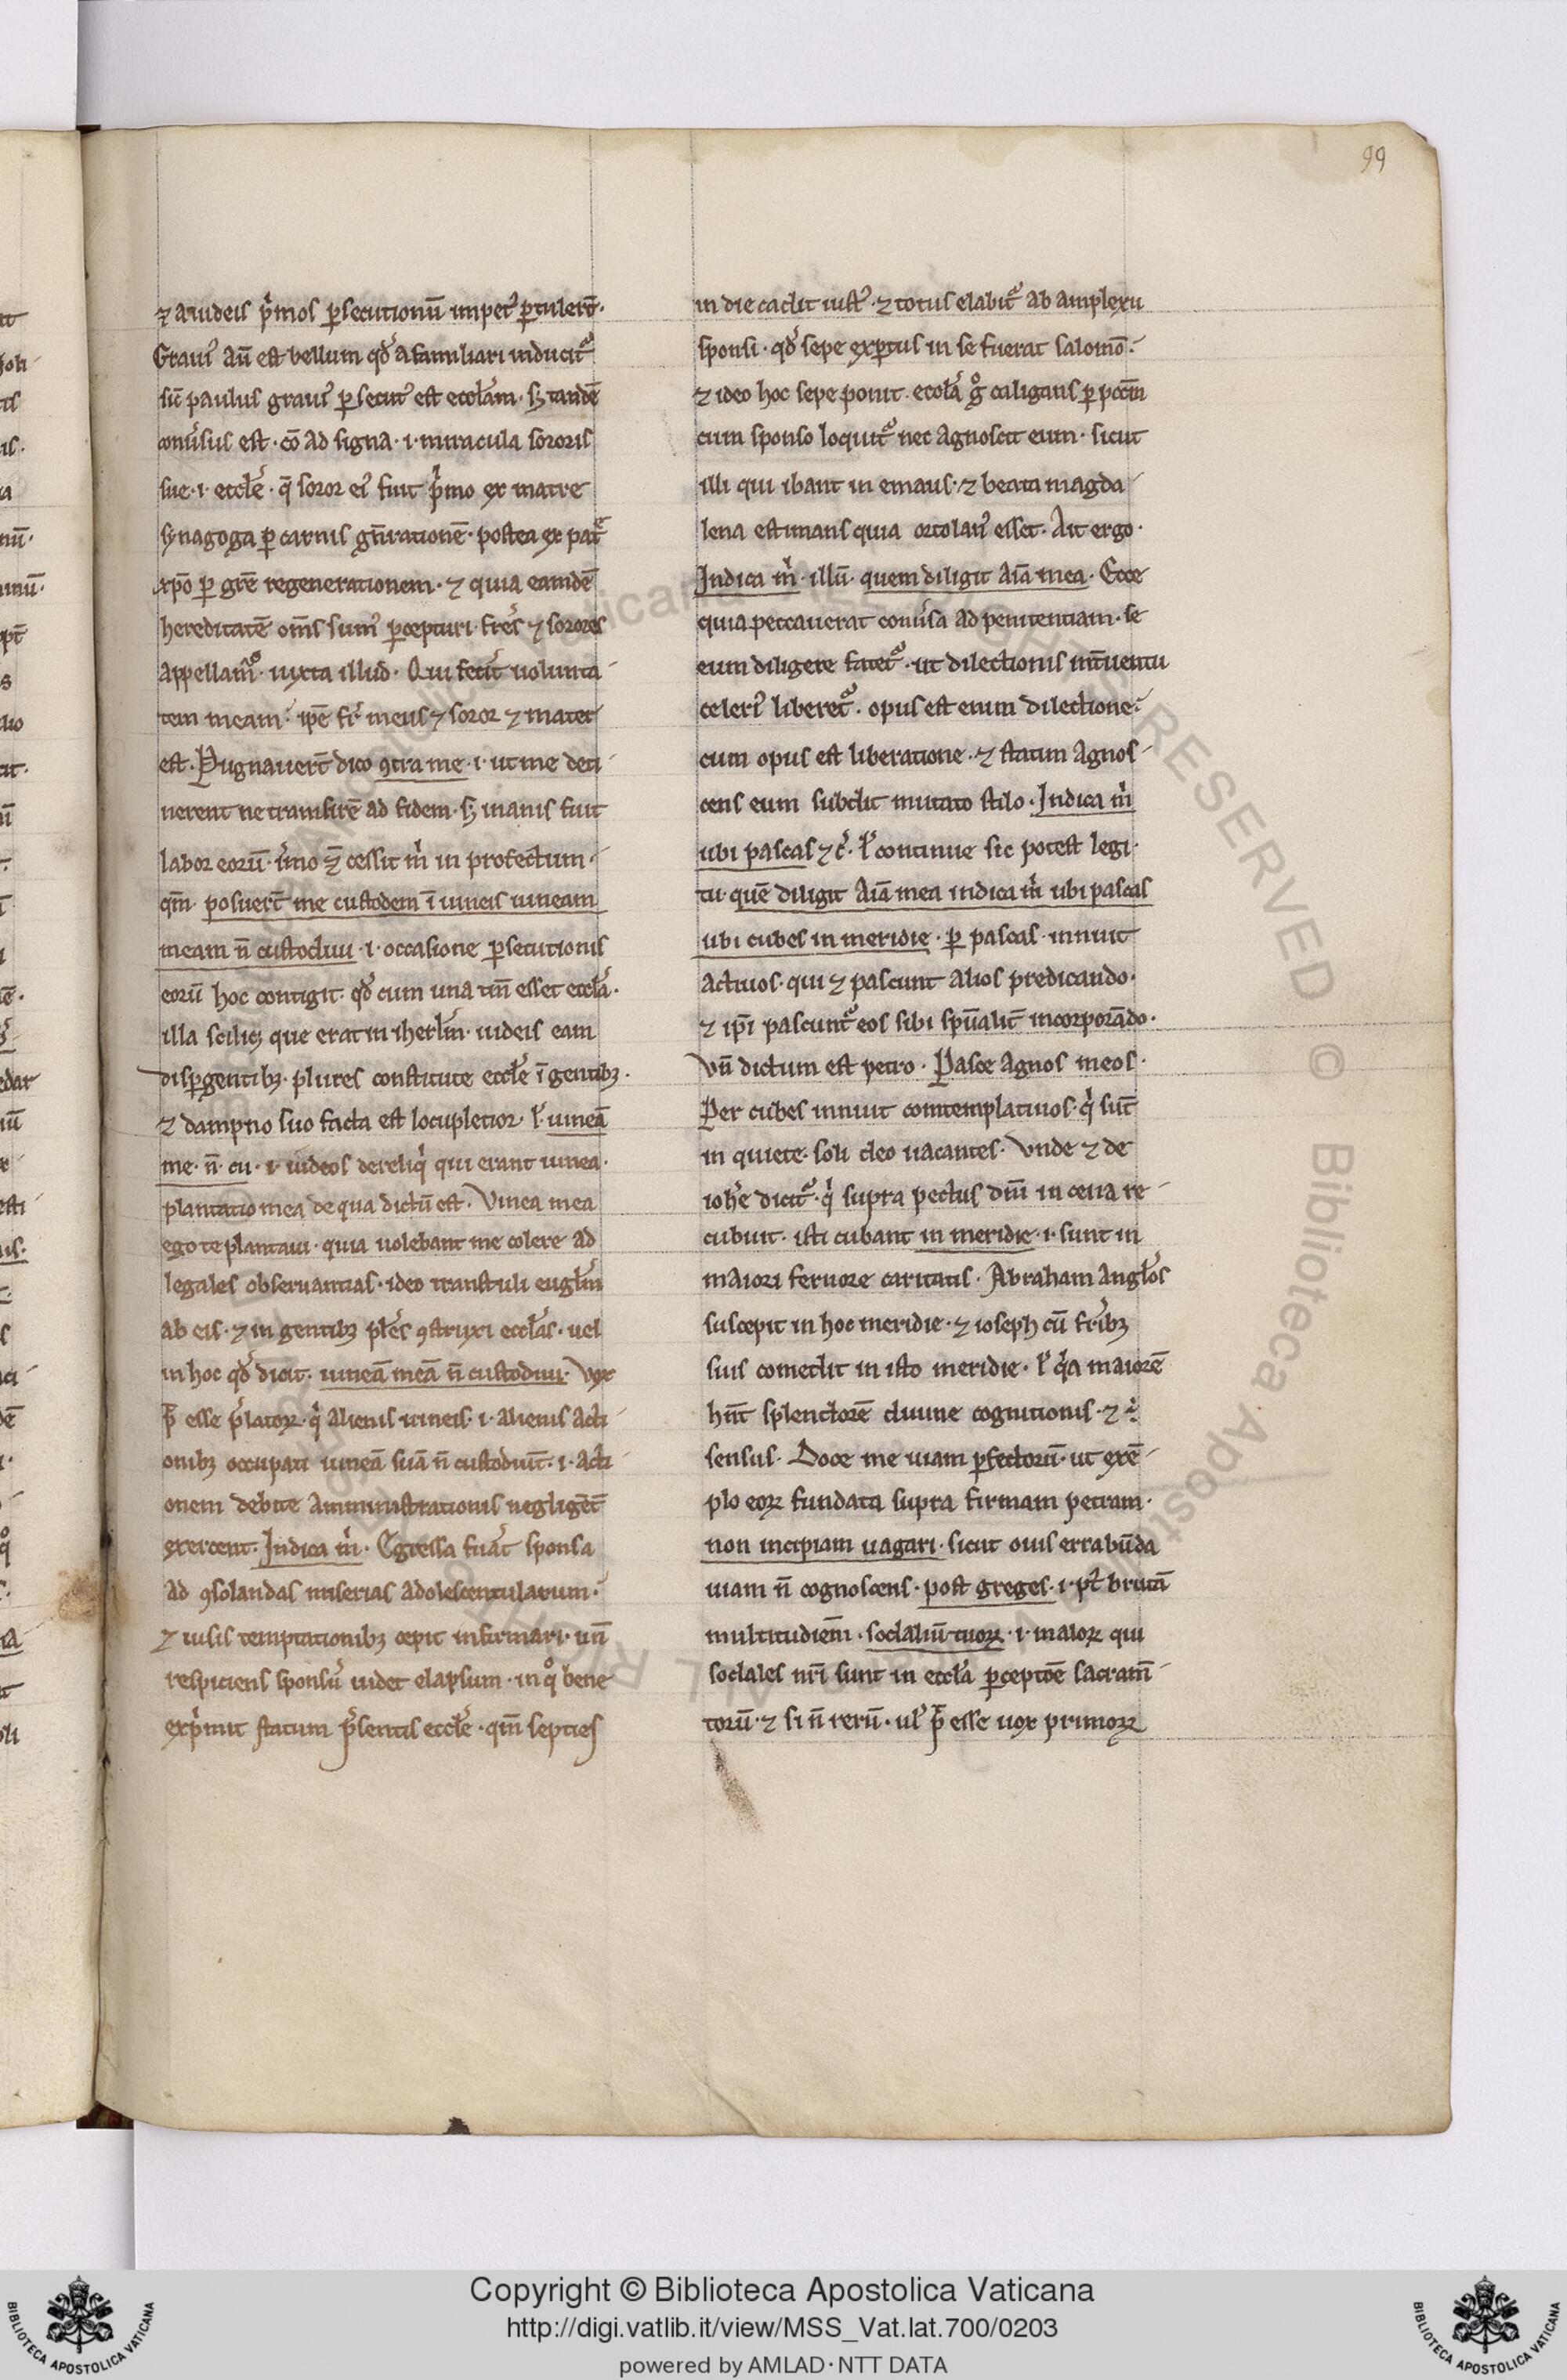 99
⁊ a iudeis p̍mos ꝑsecutionū impet᷒ ꝑtulerт̄.
Graui᷒ aū est bellum qd̓ a familiari inducit᷑
sic̄ paulus graui᷒ ꝑsecut᷒ est eccl̓am. sꝫ tandē
conu̓sus est. cō ad signa .i. miracula sororis
sue .i. eccl̓e. q̄ soror ei᷒ fuit p̍mo ex matre
synagoga ꝑ carnis gn̄rationē. postea ex patr̄e
xp̄o ꝑ gr̄e regenerationem. ⁊ quia eamdē
hereditatē om̄s sum᷒ ꝑcepturi. fr̄es ⁊ sorores
appellam᷑. iuxta illud. Qui fec̓it uolunta
tem meam. ip̄e fr̄ meus ⁊ soror ⁊ mater
est. Pugnauer̄t dico ꝯtra me .i. ut me deti
nerent ne transirē ad fidem. sꝫ inanis fuit
labor eorū. īmo ⁊ cessit m̍ in profectum.
qm̄ posuer̄t me custodem ī uineis uineam
meam n̄ custodiui .i. occasione ꝑsecutionis
eorū hoc contigit. qd̓ cum una tm̄ esset eccl̓a.
illa scilicꝫ que erat in iherl̓m. iudeis eam
disꝑgentibꝫ. plures constitute eccl̓e ī gentibꝫ.
⁊ dampno suo facta est locupletior. l̓ uineā
me. n̄. cu. i. iudeos dereliq̍ qui erant uinea.
plantatio mea de qua dictū est. Vinea mea
ego te plantaui. quia uolebant me colere ad
legales obseruantias. ideo transtuli eugl̓m
ab eis. ⁊ in gentibꝫ pl̓es ꝯstruxi eccl̓as. uel
in hoc qd̓ dicit. uineā meā n̄ custodiui. Vox
p̄t esse p̓latoꝝ. q̍ alienis uineis .i. alienis acti
onibꝫ occupati uineā suā n̄ custodiūt .i. acti
onem debite amministrationis negligēt̄
exercent. Indica m̍. Egressa fu̓at sponsa
ad ꝯsolandas miserias adolescentularum.
⁊ uisis temptationibꝫ cepit infirmari. un̄
respiciens sponsū uidet elapsum. in qͦ bene
exp̍mit statum p̓sentis eccl̓e. qm̄ septies
in die cadit iust᷒. ⁊ totus elabit᷑ ab amplexu
sponsi. qd̓ sepe exꝑtus in se fuerat salomō.
⁊ ideo hoc sepe ponit. eccl̓a gͦ caligans ꝑ pcc̄m
cum sponso loquit᷑ nec agnoscit eum. sicut
illi qui ibant in emaus. ⁊ beata magda
lena estimans quia ortolan᷒ esset. Ait ergo.
Indica m̍. illū. quem diligit aīa mea. Ecce
quia peccauerat conu̓sa ad penitentiam. se
eum diligere fatet᷑. ut dilectionis int̄uentu
celeri᷒ liberet᷑. opus est enim dilectione.
cum opus est liberatione. ⁊ statim agnos
cens eum subdit mutato stilo. Indica m̍
ubi pascas ⁊c̓. l̓ continue sic potest legi.
tu. quē diligit aīa mea indica m̍ ubi pascas
ubi cubes in meridie. ꝑ pascas innuit
actiuos. qui ⁊ pascunt alios predicando.
⁊ ip̄i pascunt᷑ eos sibi sp̄ualit̄ incorporādo.
Vn̄ dictum est petro. Pasce agnos meos.
Per cubes innuit comtemplatiuos. q̍ sūt
in quiete. soli deo uacantes. Vnde ⁊ de
ioh̓e dicit᷑. q̍ supra pectus dn̄i in cena re
cubuit. isti cubant in meridie .i. sunt in
maiori feruore caritatis. Abraham angl̓os
suscepit in hoc meridie. ⁊ ioseph cū fr̄ibꝫ
suis comedit in isto meridie. l̓ q̍a maiorē
hn̄t splendorē diuine cognitionis. ⁊ ē
sensus. Doce me uiam ꝑfectorū. ut exē
plo eoꝝ fundata supra firmam petram.
non incipiam uagari. sicut ouis errabūda
uiam n̄ cognoscens. post greges .i. pt̓ brutā
multitudiēm. sodaliū tuoꝝ .i. maloꝝ qui
sodales nr̄i sunt in eccl̓a ꝑceptōe sacram̄
torū. ⁊ si n̄ rerū. ul̓ p̄t esse uox primoꝝ
Copyright © Biblioteca Apostolica Vaticana
http://digi.vatlib.it/view/MSS_Vat.lat.700/0203
powered by AMLAD · NTT DATA